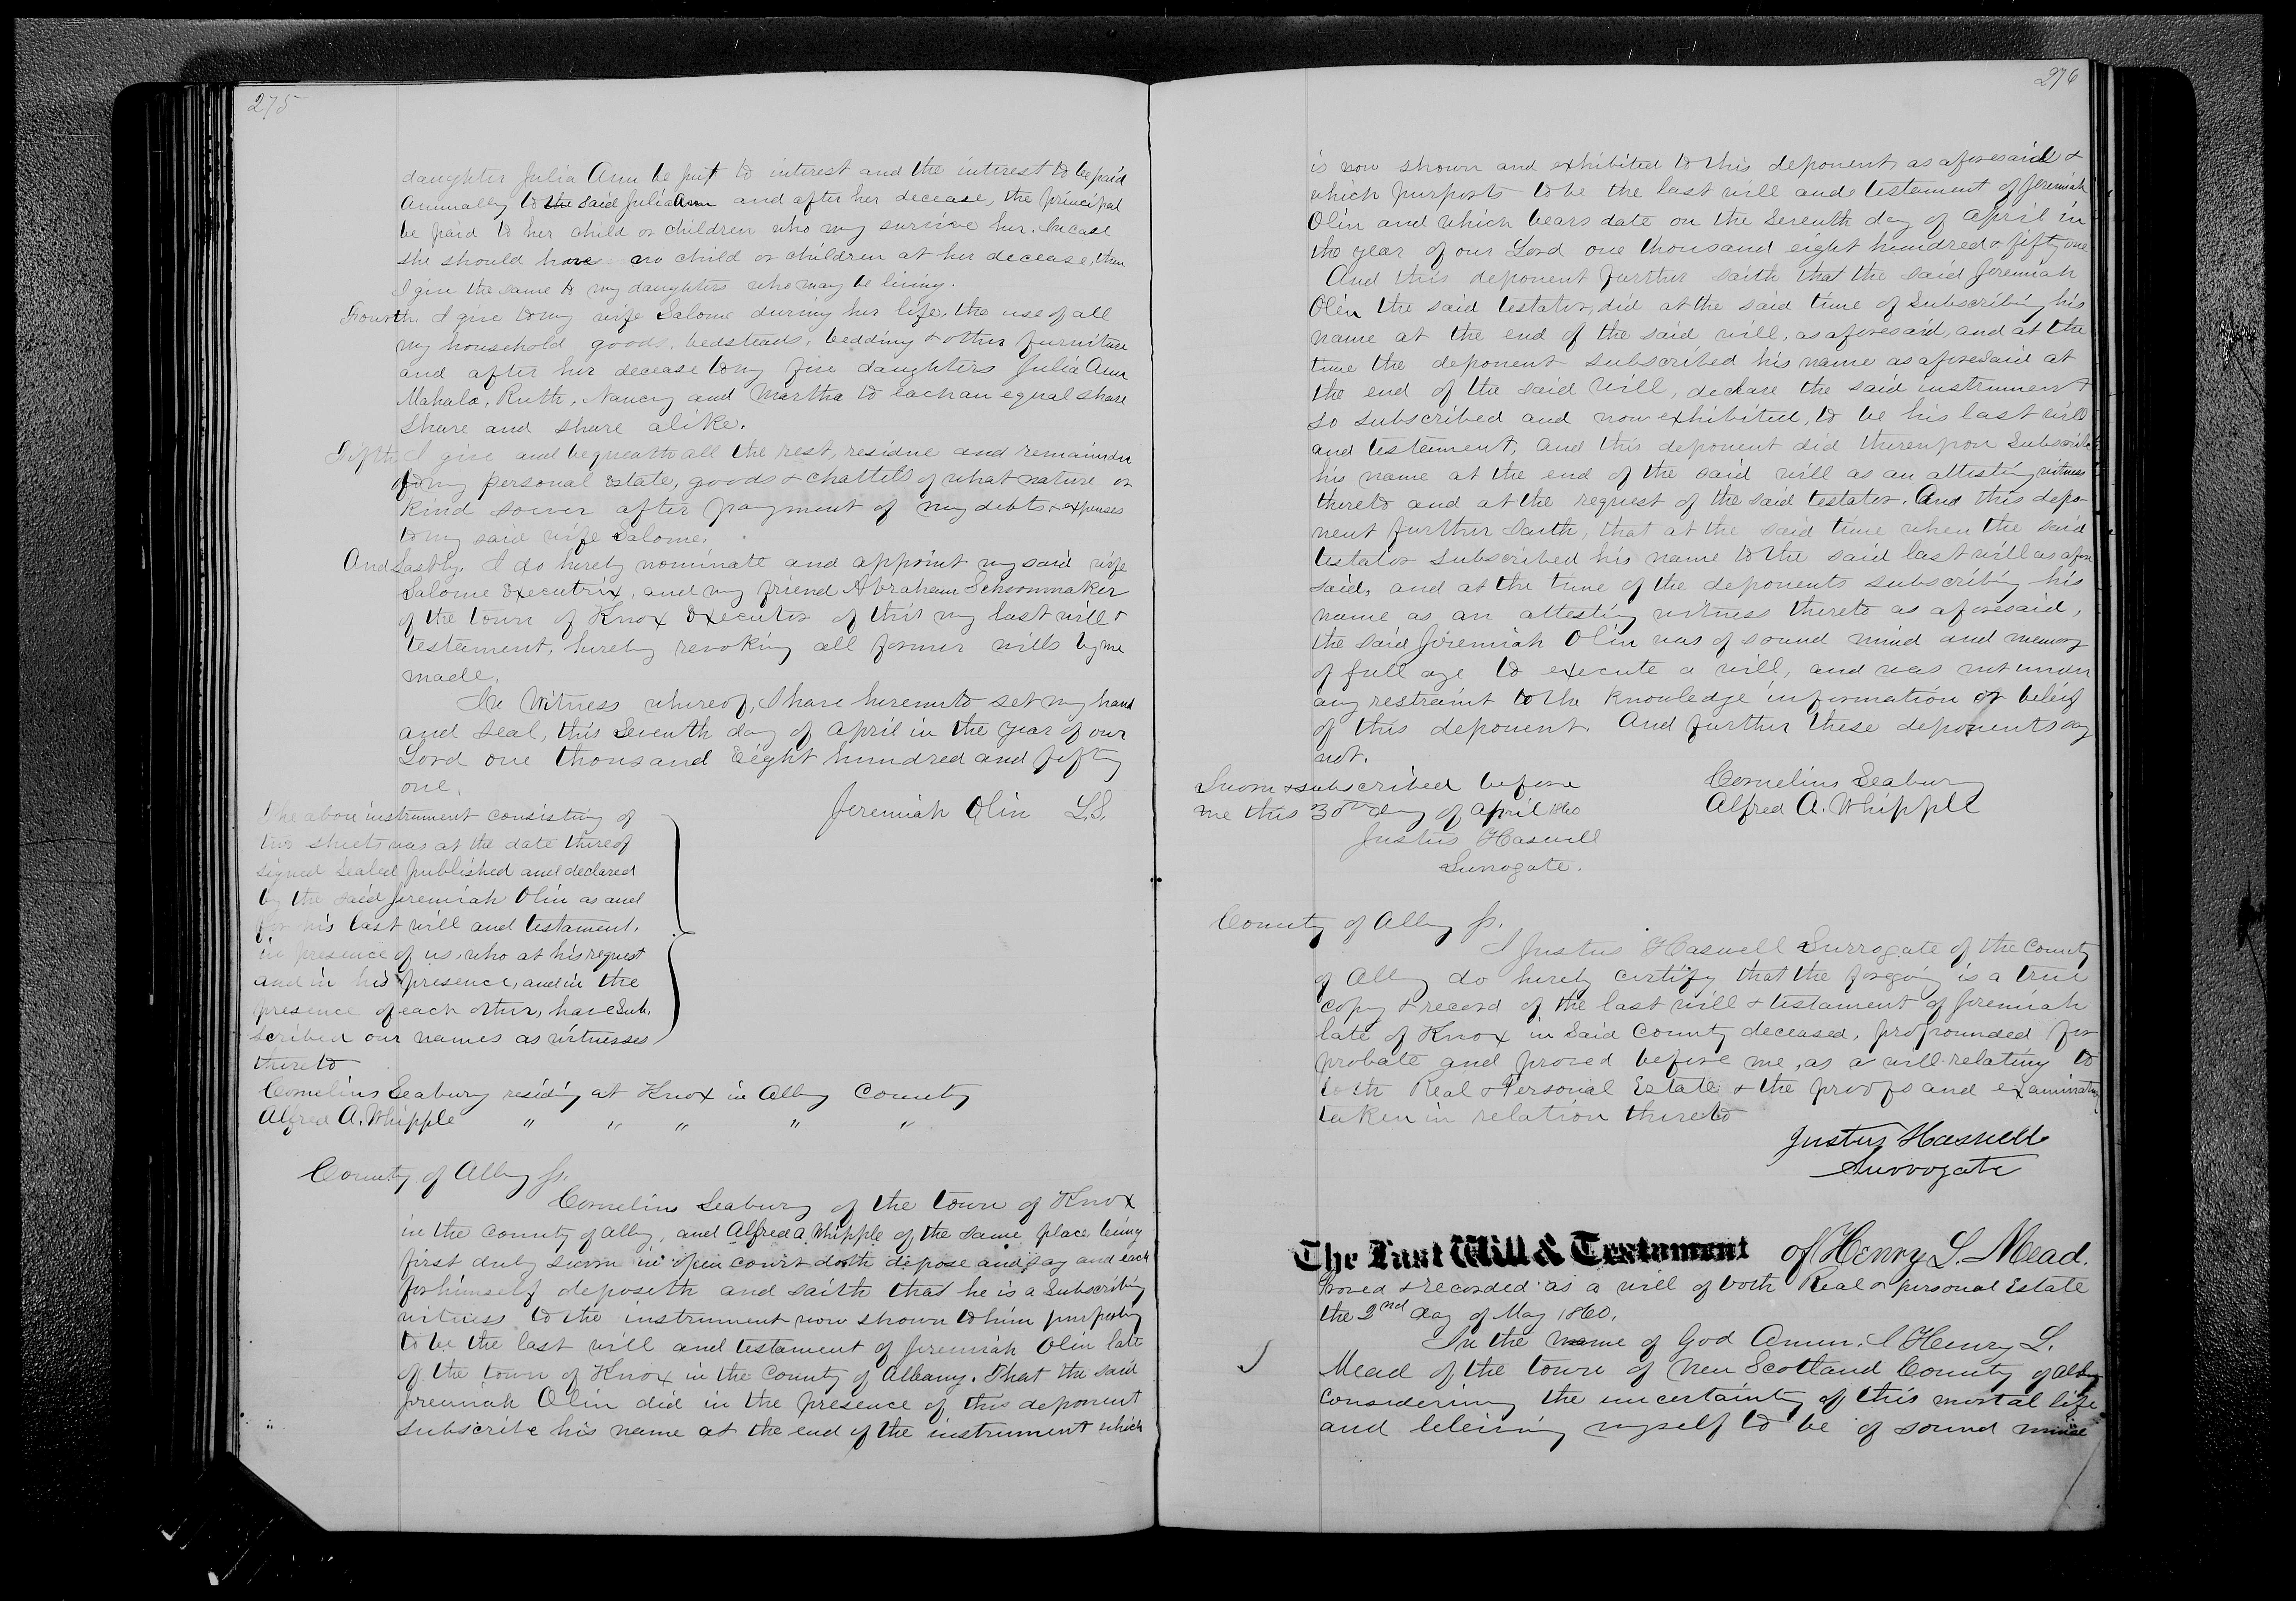 275
daughter Julia Ann be put to interest and the interest to be paid
Annually to the said Julia Ann and after her decease, the principal
be paid to her child or children who may survive her. In case
she should have no child or children at her decease, then
I give the same to my daughters who may be living.
Fourth. I give to my wife Salome during her life, the use of all
my household goods, bedsteads, bedding & other furniture
and after her decease to my five daughters Julia Ann
Mahala, Ruth, Nancy and Martha to each an equal share
share and share alike.
Fifth I give and bequeath all the rest, residue and remainder
of my personal estate, goods & chattels of what nature or
kind soever after payment of my debts & expenses
to my said wife Salome.
And Lastly. I do hereby nominate and appoint my said wife
Salome Executrix, and my friend Abraham Schoonmaker
of the town of Knox Executor of this my last will &
testement, hereby revoking all former wills by me
made.
In Witness whereof, I have hereunto set my hand
and seal, this Seventh day of April in the year of our
Lord one thousand Eight hundred and fifty
one.
Jeremiah Olin L.S.
The above instrument consisting of
two sheets was at the date thereof
signed sealed published and declared
by the said Jeremiah Olin as and
for his last will and testament.
in presence of us, who at his request
and in his presence, and in the
presence of each other, have sub.
scribed our names as witnesses
thereto
Cornelius Seabury residing at Knox in Alby County
Alfred A. Whipple " " " " "
County of Alby ss.
Cornelius Seabury of the town of Knox
in the County of Alby, and Alfred A. Whipple of the same place being
first duly sworn in open court doth depose and say and each
for himself deposeth and saith that he is a Subscribing
witness to the instrument now shown to him purporting
to be the last will and testament of Jeremiah Olin late
of the town of Knox in the County of Albany. That the said
Jeremiah Olin did in the presence of this deponent
subscribe his name at the end of the instrument which
276
is now shown and exhibited to this deponent as aforesaid &
which purports to be the last will and testement of Jeremiah
Olin and which bears date on the Seventh day of April in
the year of our Lord one thousand eight hundred & fifty one
And this deponent further saith that the said Jeremiah
Olin the said testator, did at the said time of Subscribing his
name at the end of the said will, as aforesaid, and at the
time the deponent subscribed his name as aforesaid at
the end of the said will, declare the said instrument
so subscribed and now exhibited, to be his last will
and testement, and this deponent did thereupon Subscribe
his name at the end of the said will as an attesting witness
thereto and at the request of the said testator. And this depo-
nent further saith, that at the said time when the said
testator subscribed his name to the said last will as afore
said, and at the time of the deponents subscribing his
name as an attesting witness thereto as aforesaid,
the said Jeremiah Olin was of sound mind and memory
of full age to execute a will, and was not under
any restraint to the knowledge information or belief
of this deponent. And further these deponents say
not.
Sworn & subscribed before
me this 30th day of April 1860
Justus Haswell
Surrogate.
Cornelius Seabury
Alfred A. Whipple
County of Alby ss.
I Justus Haswell Surrogate of the County
of Alby do hereby certify that the foregoing is a true
copy & record of the last will & testament of Jeremiah
late of Knox in said County deceased, propounded for
probate and proved before me, as a will relating to
both Real & Personal Estate & the proofs and examination
taken in relation thereto
Justus Haswell
Surrogate
The Last Will & Testament of Henry L. Mead.
Proved & recorded as a will of both Real & personal Estate
the 2nd day of May 1860.
In the name of God Amen. I Henry L.
Mead of the town of New Scotland County of Alby
considering the uncertainty of this mortal life
and beleiving myself to be of sound mind